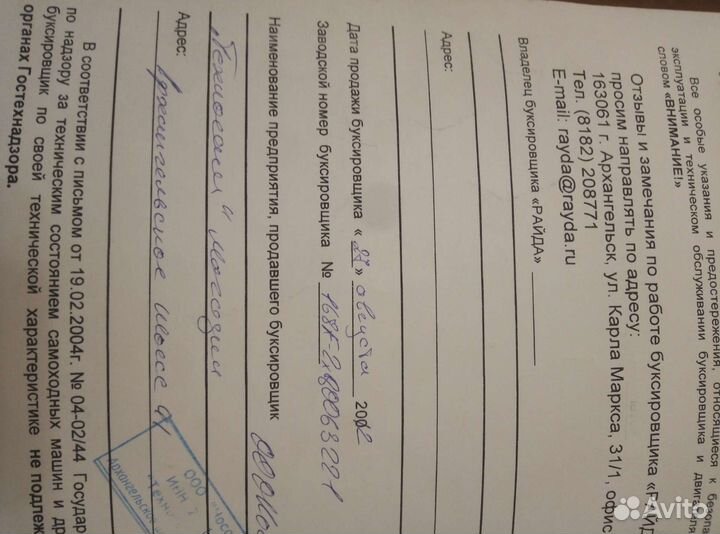 Все особые указания и предостережения, относящиеся к безопа
эксплуатации и техническом обслуживании буксировщика и двигателя
словом «ВНИМАНИЕ!»
Отзывы и замечания по работе буксировщика «РАЙД
просим направлять по адресу:
163061 г. Архангельск, ул. Карла Маркса, 31/1, офис
Тел. (8182) 208771
E-mail: rayda@rayda.ru
Владелец буксировщика «РАЙДА»
Адрес:
Дата продажи буксировщика « 27 » августа 20
Заводской номер буксировщика №
Наименование предприятия, продавшего буксировщик ООО
"Техносон" Магазин
Адрес: Архангельское шоссе
ООО
ИНН
Архангельское
В соответствии с письмом от 19.02.2004г. № 04-02/44 Государ
по надзору за техническим состоянием самоходных машин и др
буксировщик по своей технической характеристике не подлеж
органах Гостехнадзора.
Avito